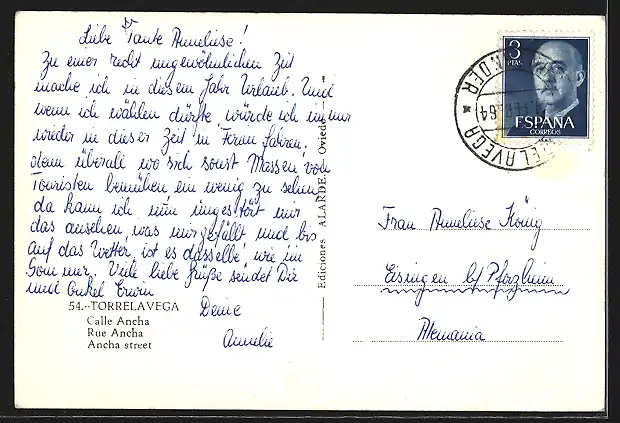 Liebe Tante Anneliese!
Zu einer recht ungewöhnlichen Zeit
mache ich in diesem Jahr Urlaub. Und
wenn ich wählen dürfte, würde ich immer
wieder in dieser Zeit in Ferien fahren,
denn überall wo sich sonst Massen von
Touristen bemühen ein wenig zu sehen
da kann ich nun ungestört mir
das ansehen, was mir gefällt und bis
auf das Wetter, ist es dasselbe wie im
Sommer. Viele liebe Grüße sendet Dir
und Onkel Erwin
Deine
Amelie
54.-TORRELAVEGA
Calle Ancha
Rue Ancha
Ancha street
Ediciones ALARDE Oviedo
3
PTAS
ESPAÑA
CORREOS
TORRELAVEGA
64
Frau Anneliese König
Eisingen b/Pforzheim
Alemania